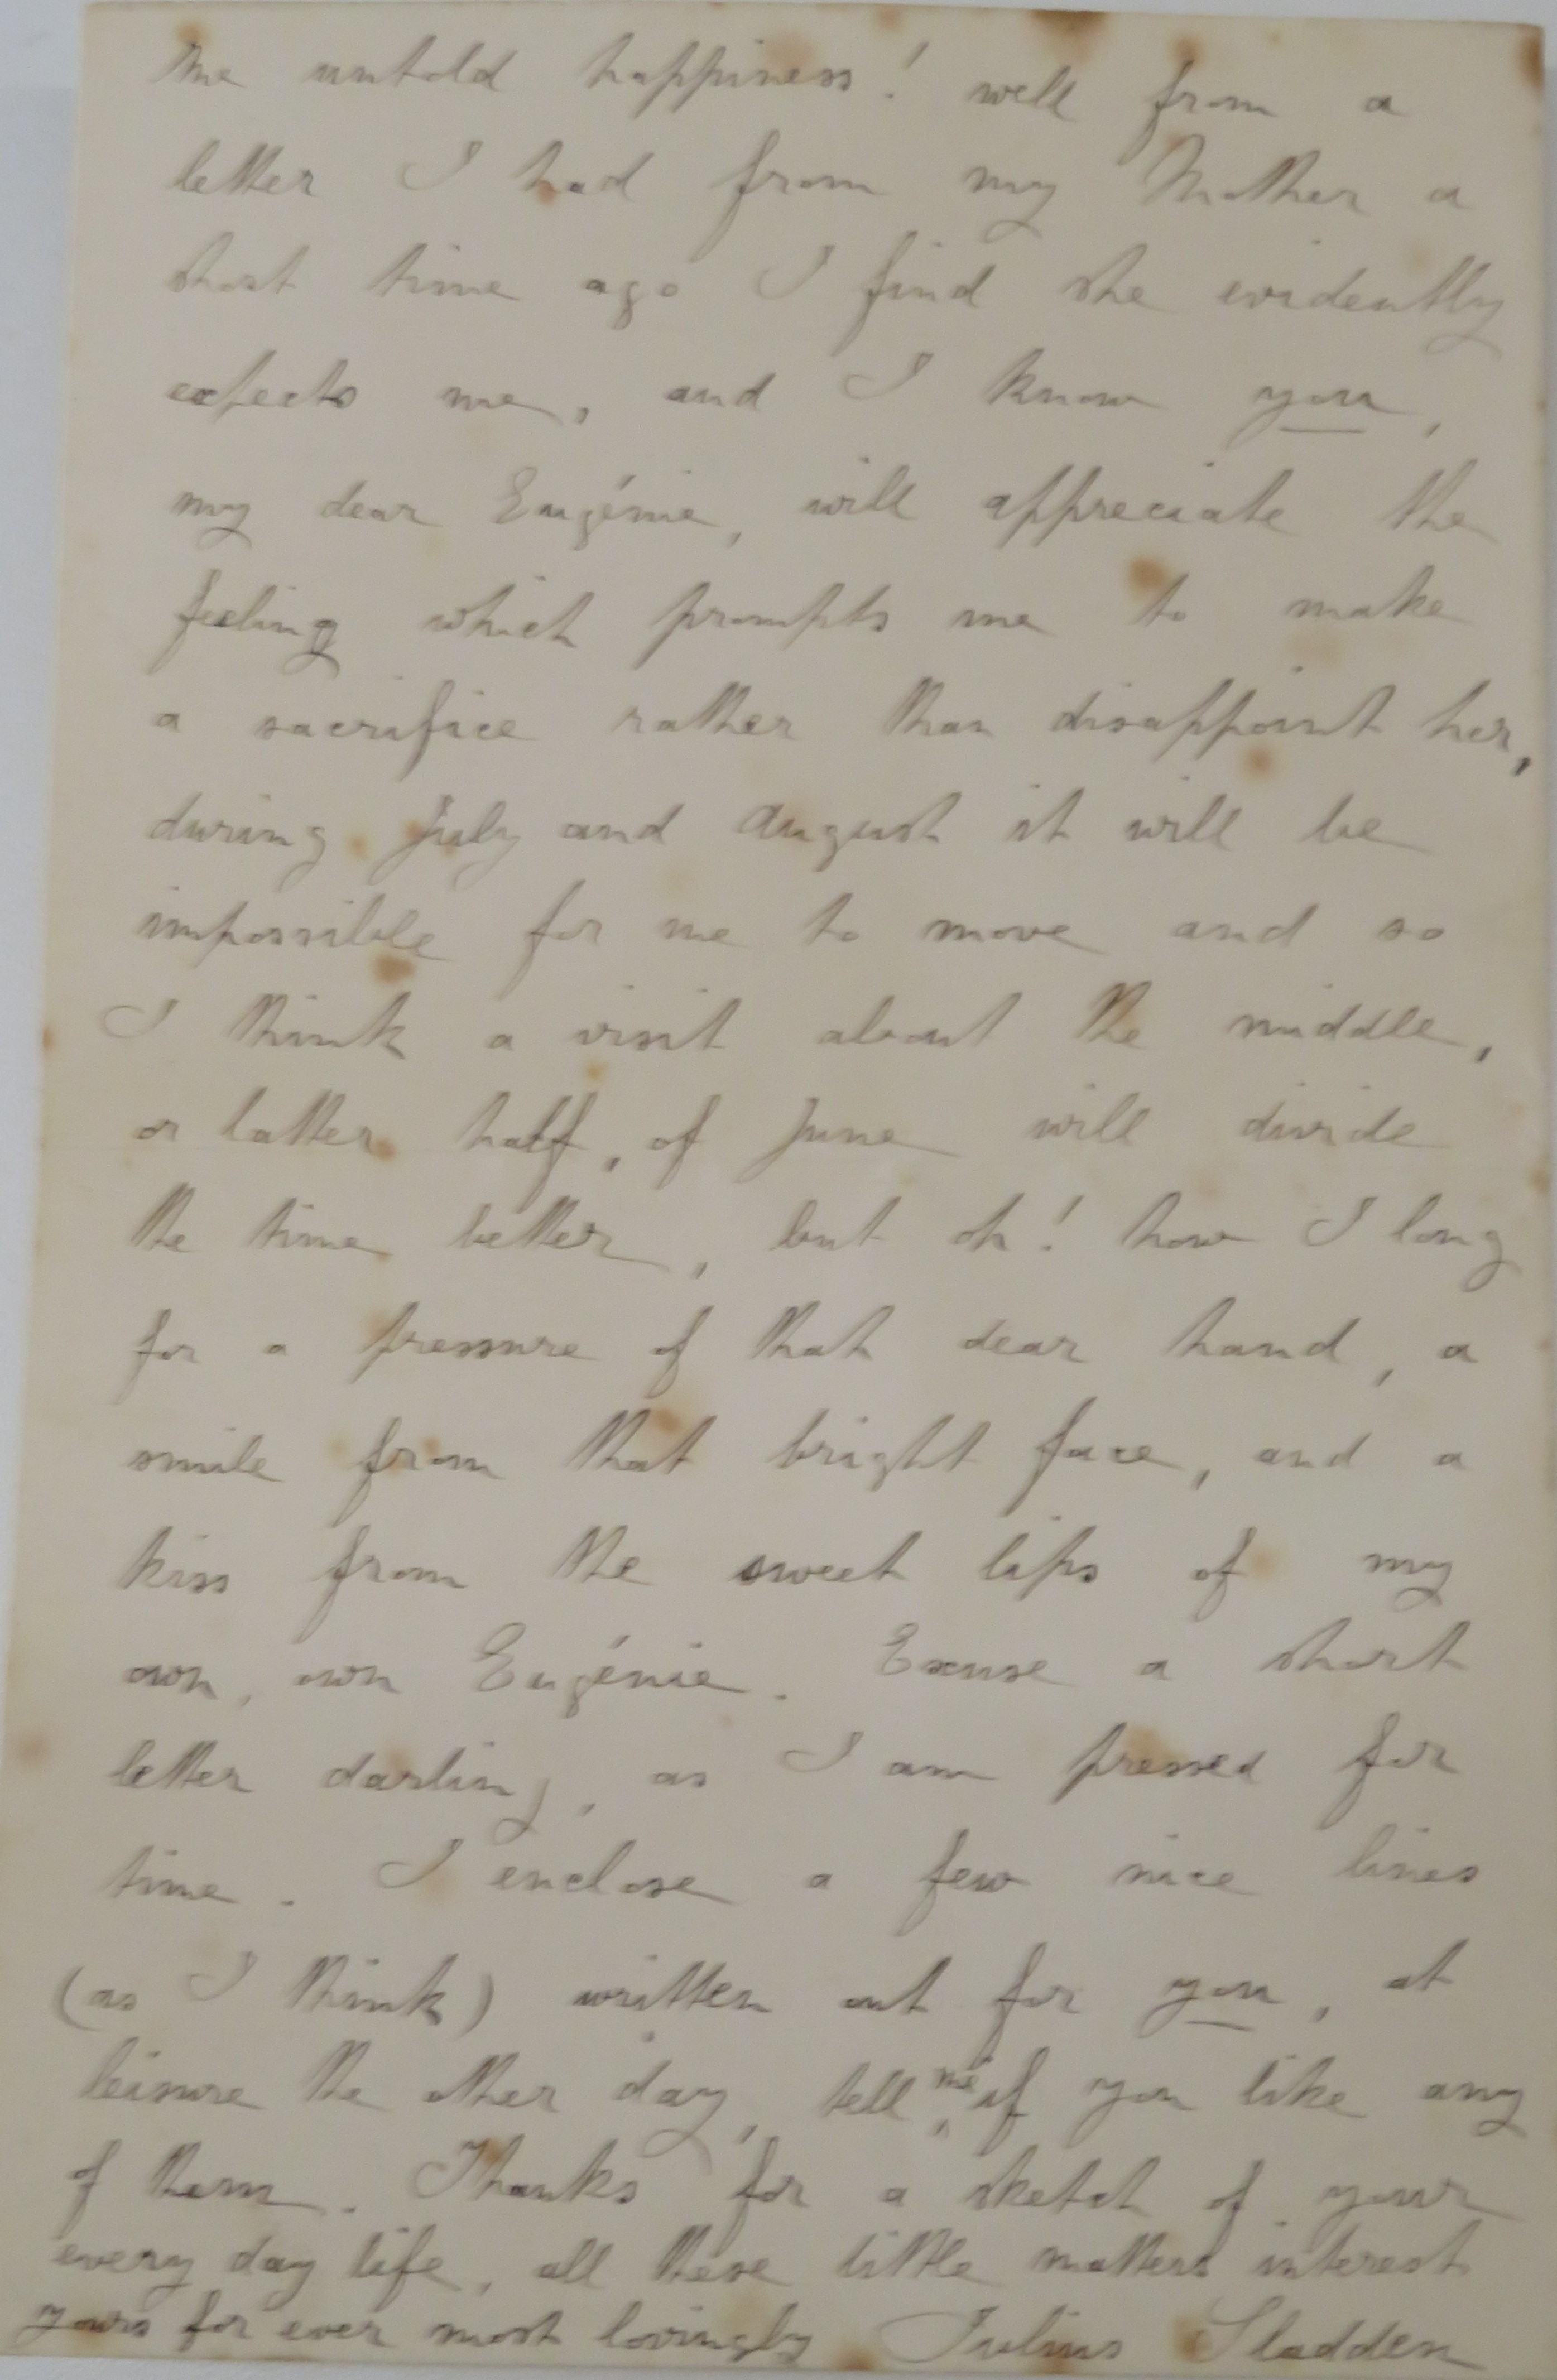 me untold happiness! well from a
letter I had from my Mother a
short time ago I find she evidently
expects me, and I know you,
my dear Eugénie, will appreciate the
feeling which prompts me to make
a sacrifice rather than disappoint her,
during July and August it will be
impossible for me to move and so
I think a visit about the middle,
or latter half, of June will divide
the time better, but oh! how I long
for a pressure of that dear hand, a
smile from that bright face, and a
kiss from the sweet lips of my
own, own Eugénie. Excuse a short
letter darling, as I am pressed for
time. I enclose a few nice lines
(as I think) written out for you, at
leisure the other day, tell me if you like any
of them. Thanks for a sketch of your
every day life, all these little matters interest
yours for ever most lovingly Julius Sladden